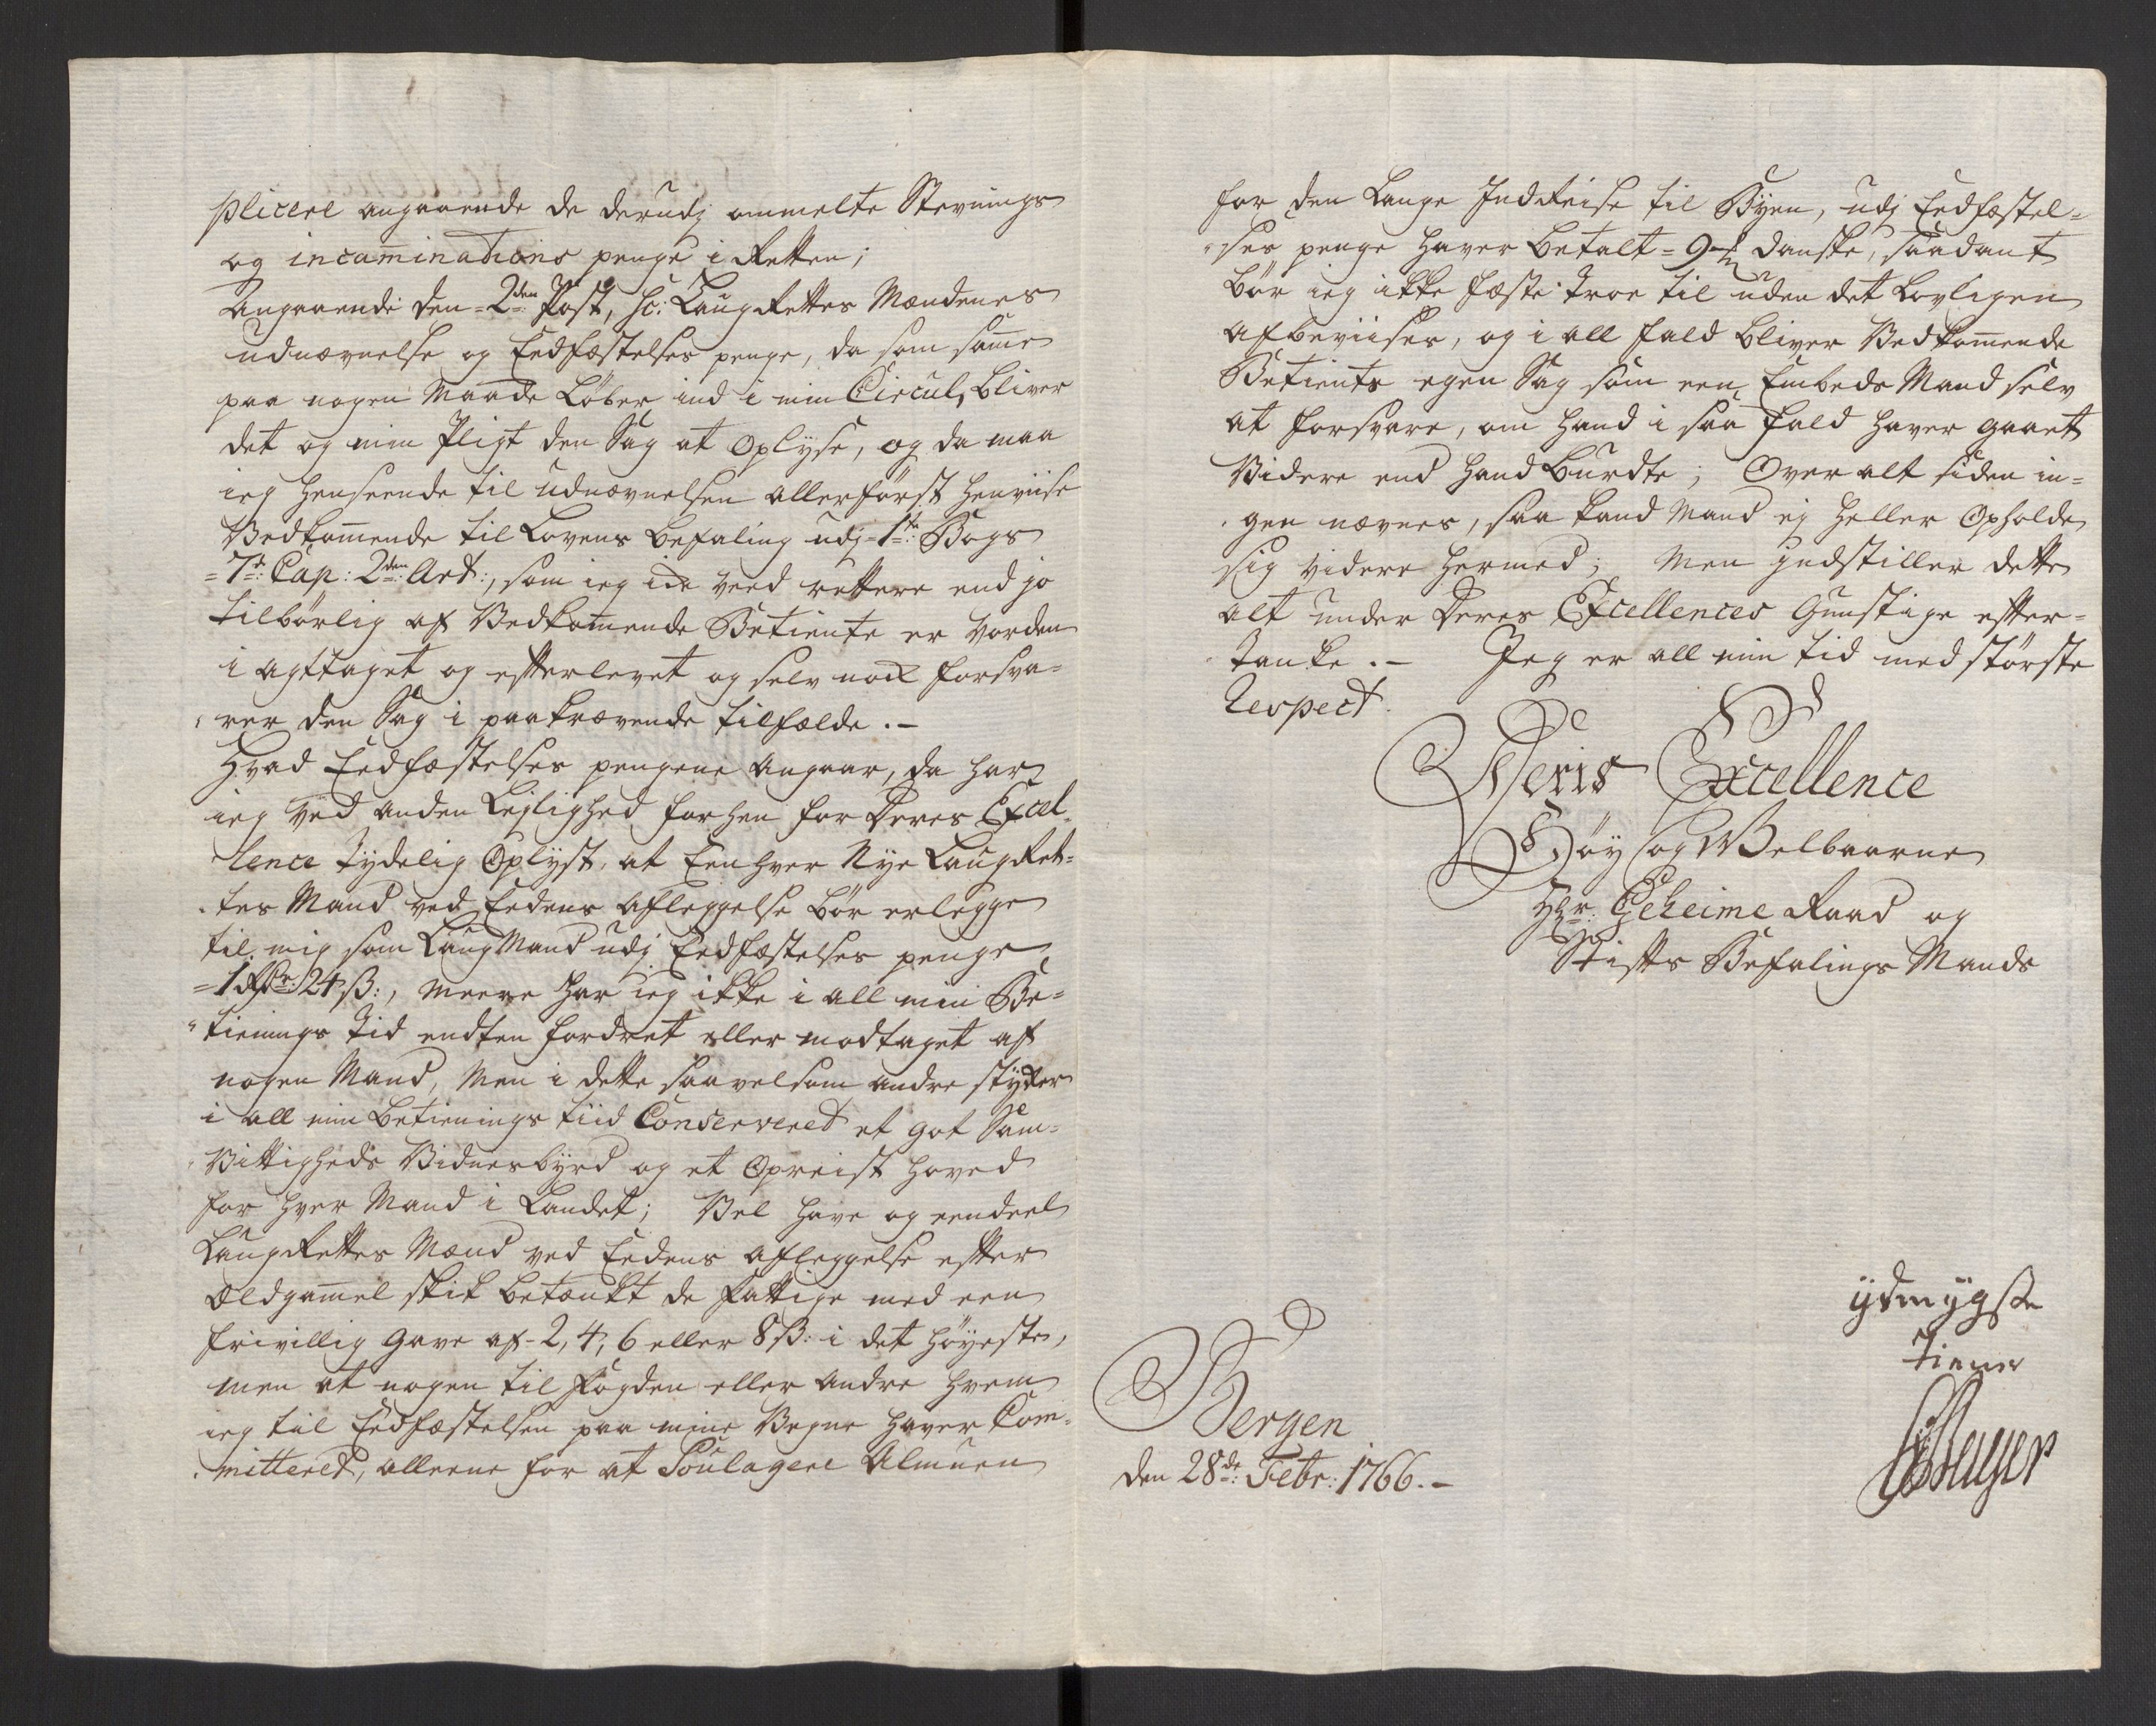 plicere angaaende de derudj ommelte Stevnings
og incam̄inations penge i Retten;
Angaaende den 2den Post, sc: LaugRettes Mændenes
udnævnelse og Eedfæstelses penge, da som sam̄e
paa nogen Maade Löber ind i min Circul, bliver
det og min Pligt den Sag at Oplyse, og da maa
ieg henseende til udnævnelsen allerförst henviise
Vedkom̄ende til Lovens befaling udj 1te Bogs
7de Cap: 2den Art:, som ieg ide veed rettere end jo
tilbörlig af Vedkom̄ende Betiente er vorden
i agttaget og efterlevet og selv nok forsva=
rer den Sag i paakrævende tilfælde.-
Hvad Eedfæstelses pengene angaar, da har
ieg ved anden Leylighed forhen for Deres Excel=
lence tydelig Oplyst, at Eenhver Nye LaugRet=
tes Mand ved Eedens aflæggelse bör erlegge
til mig som LaugMand udj Eedfæstelses penge
=1 Rdr: 24 ß:, meere har ieg ikke i all min Be=
tienings tid endten fordret eller modtaget af
nogen Mand, Men i dette saavelsom andre stykker
i all min betienings tiid Conserveret et got Sam=
Vittigheds Vidnesbyrd og et Opreist hoved
for hver Mand i Landet; Vel have og eendeel
LaugRettes Mænd ved Eedens aflæggelse efter
Eldgam̄el skik betænkt de fattige med een
frivillig Gave af 2, 4, 6 eller 8 ß: i det höyeste,
men at nogen til fogden eller andre hvem
ieg til Eedfæstelsen paa mine Vegne haver Com=
mitteret, alleene for at Soulagere Almuen
for den Lange IndReise til Byen, udj Eedfæstel=
ses penge haver betalt = 9 danske, saadant
bör ieg ikke fæste troe til uden det Lovligen
afbeviises, og i all fald bliver Vedkom̄ende
Betients egen Sag som een Embeds Mand selv
at forsvare, om hand i saa fald haver gaaet
Videre end hand burdte; Over alt siden in=
gen nævnes, saa kand Mand ej heller Opholde
sig videre hermed; Men jndstiller dette
alt under Deres Excellences Gunstige efter=
tanke.- Jeg er all min tid med störste
Respect.
Deris Excellence
Höy og Velbaarne
Hr: Geheime Raad og
Stifts Befalings Mands
ydmygste
tiener
Bergen
den 28de Febr: 1766.-